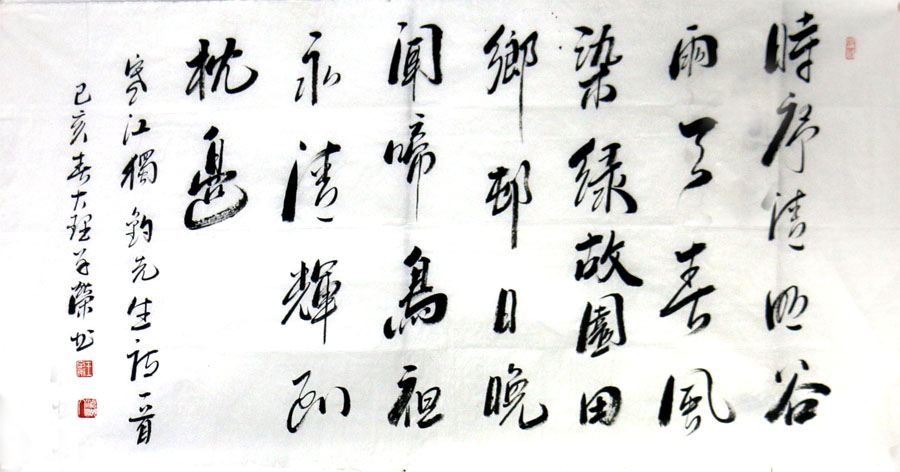 時序清明谷
雨天春風
染綠故園田
鄉邨日晚
聞啼鳥祖
永清輝到
枕邊
寒江獨釣先生詩一首
己亥春大理羊榮书